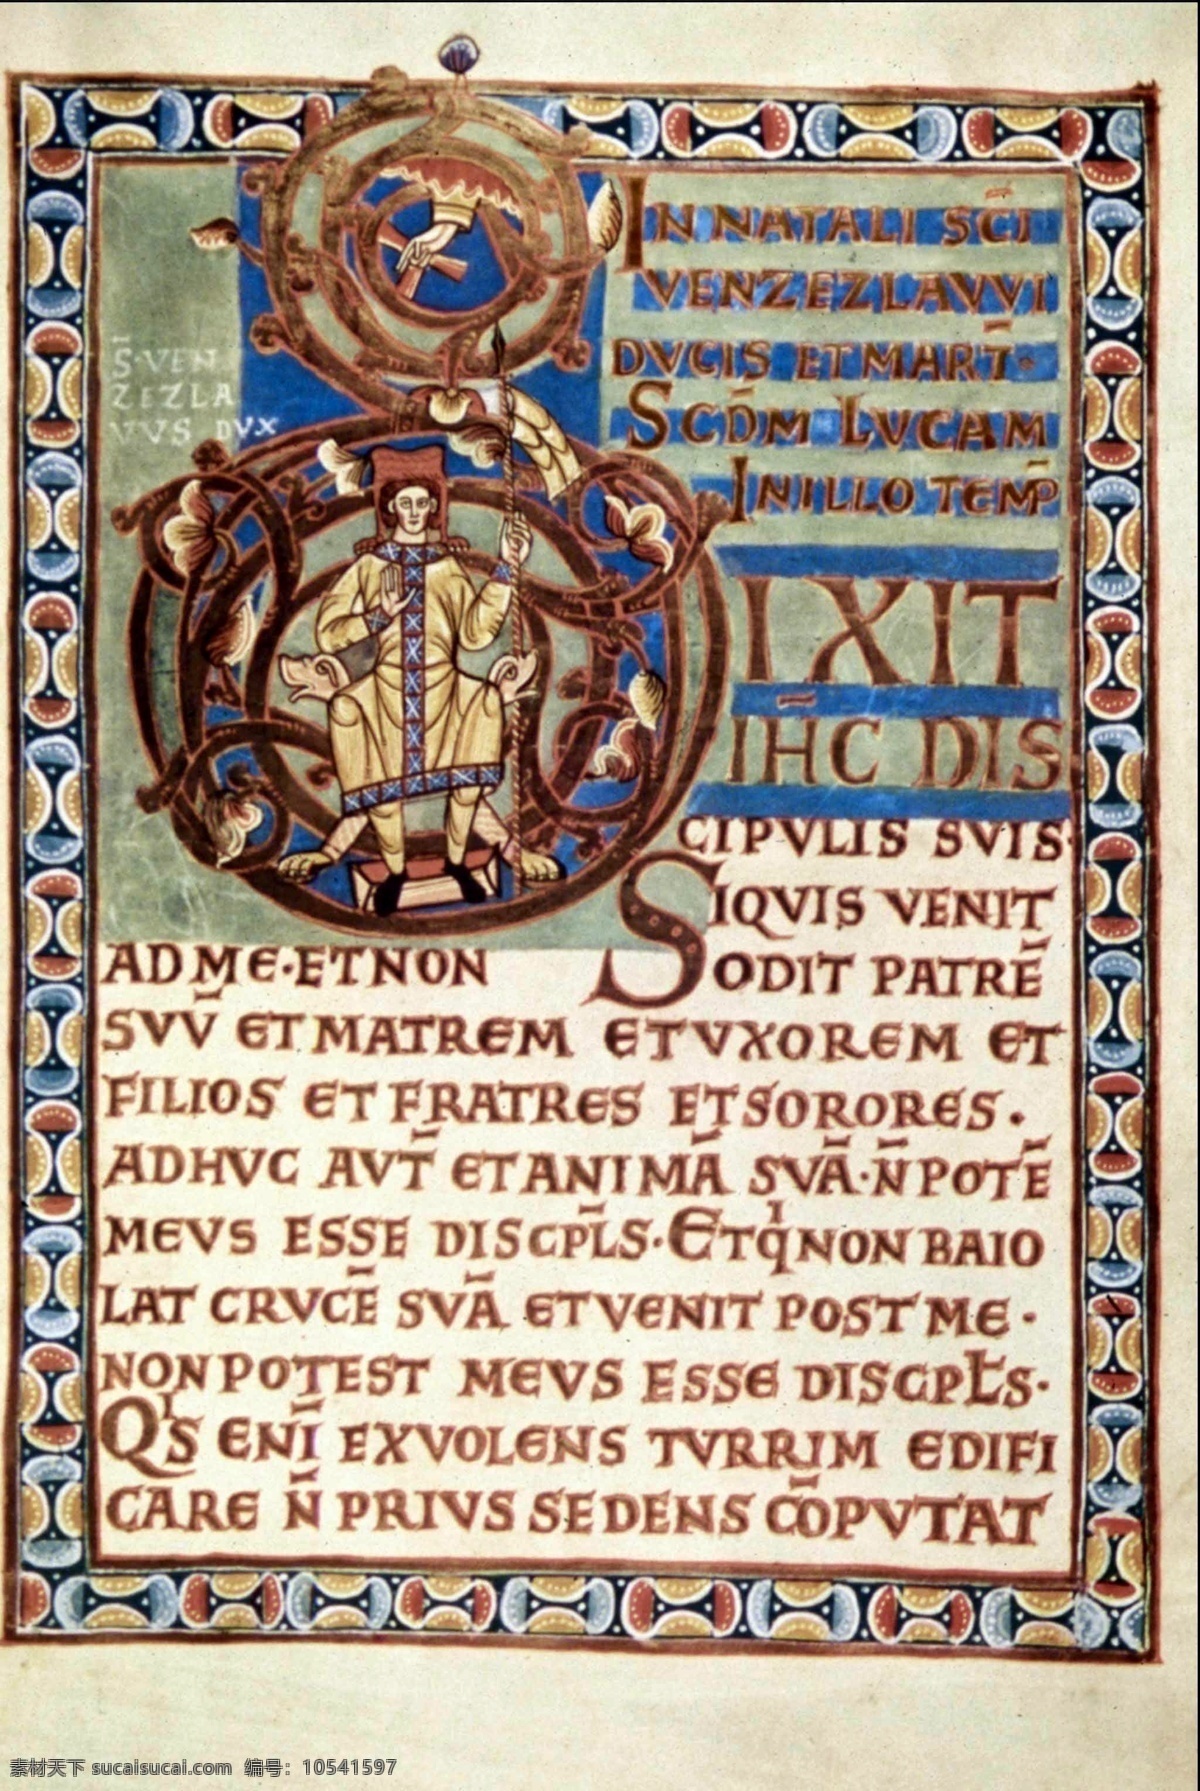 S̄·VEN
ZEZLA
VVS DVX
IN NATALI SC̄I
VENZEZLAVVI
DVCIS ET MART̄·
SCD̄M LVCAM
IN ILLO TEMP̄
DIXIT
IH̄C DIS
CIPVLIS SVIS·
SIQVIS VENIT
AD ME·ET NON
ODIT PATRĒ
SVV̄ ET MATREM ET VXOREM ET
FILIOS ET FRATRES ET SORORES.
ADHVC AVT̄ ET ANIMĀ SVĀ·N̄ POTĒ
MEVS ESSE DISCPL̄S·ET QͥNON BAIO
LAT CRVCĒ SVĀ ET VENIT POST ME·
NON POTEST MEVS ESSE DISCPŁS·
QͥS ENĪ EX VOLENS TVRRIM EDIFI
CARE N̄ PRIVS SEDENS CŌPVTAT
素材天下 sucaisucai.com 编号：10541597